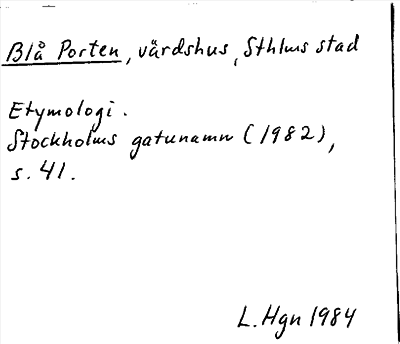 Blå Porten, värdshus, Sthlms stad
Etymologi.
Stockholms gatunamn (1982),
s. 41.
L. Hgn 1984